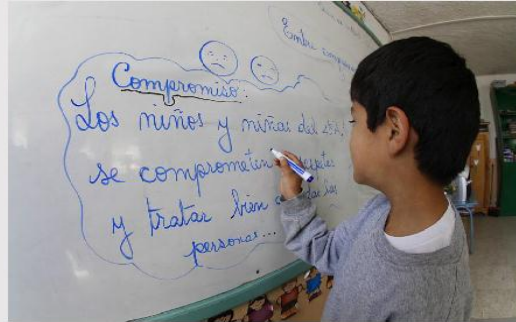 Entre
Compromiso:
Los niños y niñas del
se comprometen
y tratar bien
personas...